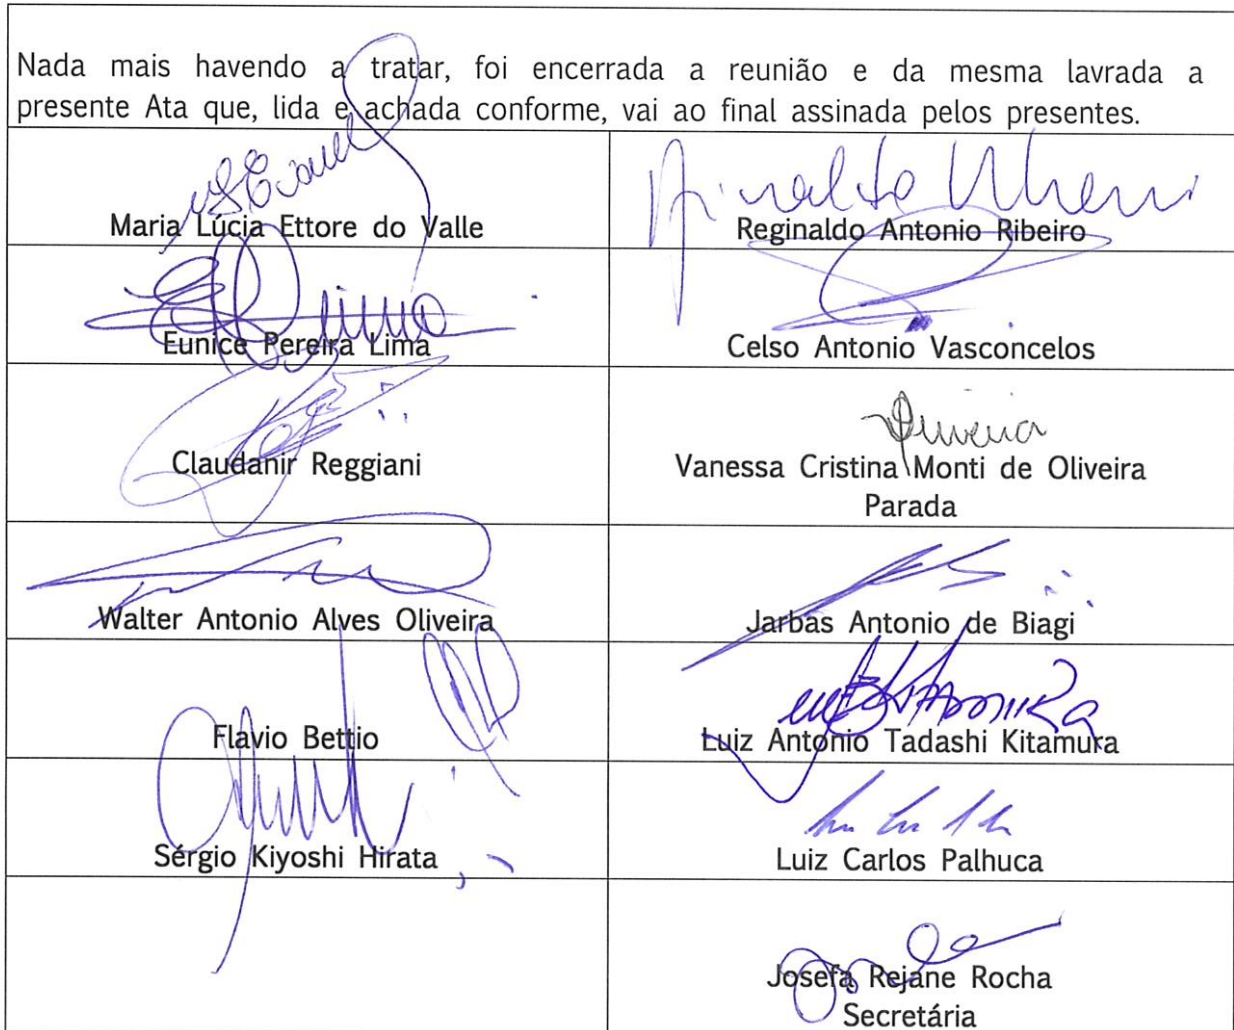 Nada mais havendo a tratar, foi encerrada a reunião e da mesma lavrada a
presente Ata que, lida e achada conforme, vai ao final assinada pelos presentes.
Maria Lúcia Ettore do Valle
Reginaldo Antonio Ribeiro
Eunice Pereira Lima
Celso Antonio Vasconcelos
Claudanir Reggiani
Vanessa Cristina Monti de Oliveira
Parada
Walter Antonio Alves Oliveira
Jarbas Antonio de Biagi
Flavio Bettio
Luiz Antonio Tadashi Kitamura
Sérgio Kiyoshi Hirata
Luiz Carlos Palhuca
Josefa Rejane Rocha
Secretária